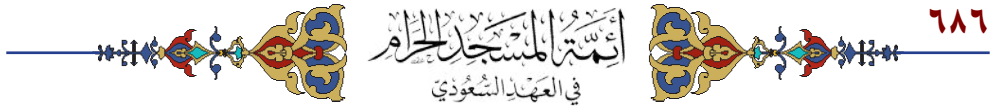 ٦٨٦
أئمة المسجد الحرام
في العهد السعودي